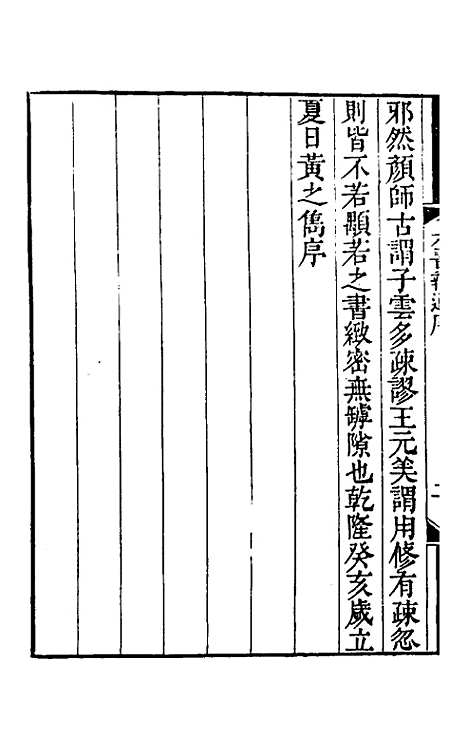 邪然顏師古謂子雲多疎謬王元美謂用修有疎忽
則皆不若顯若之書緻密無罅隙也乾隆癸亥歲立
夏日黃之雋序